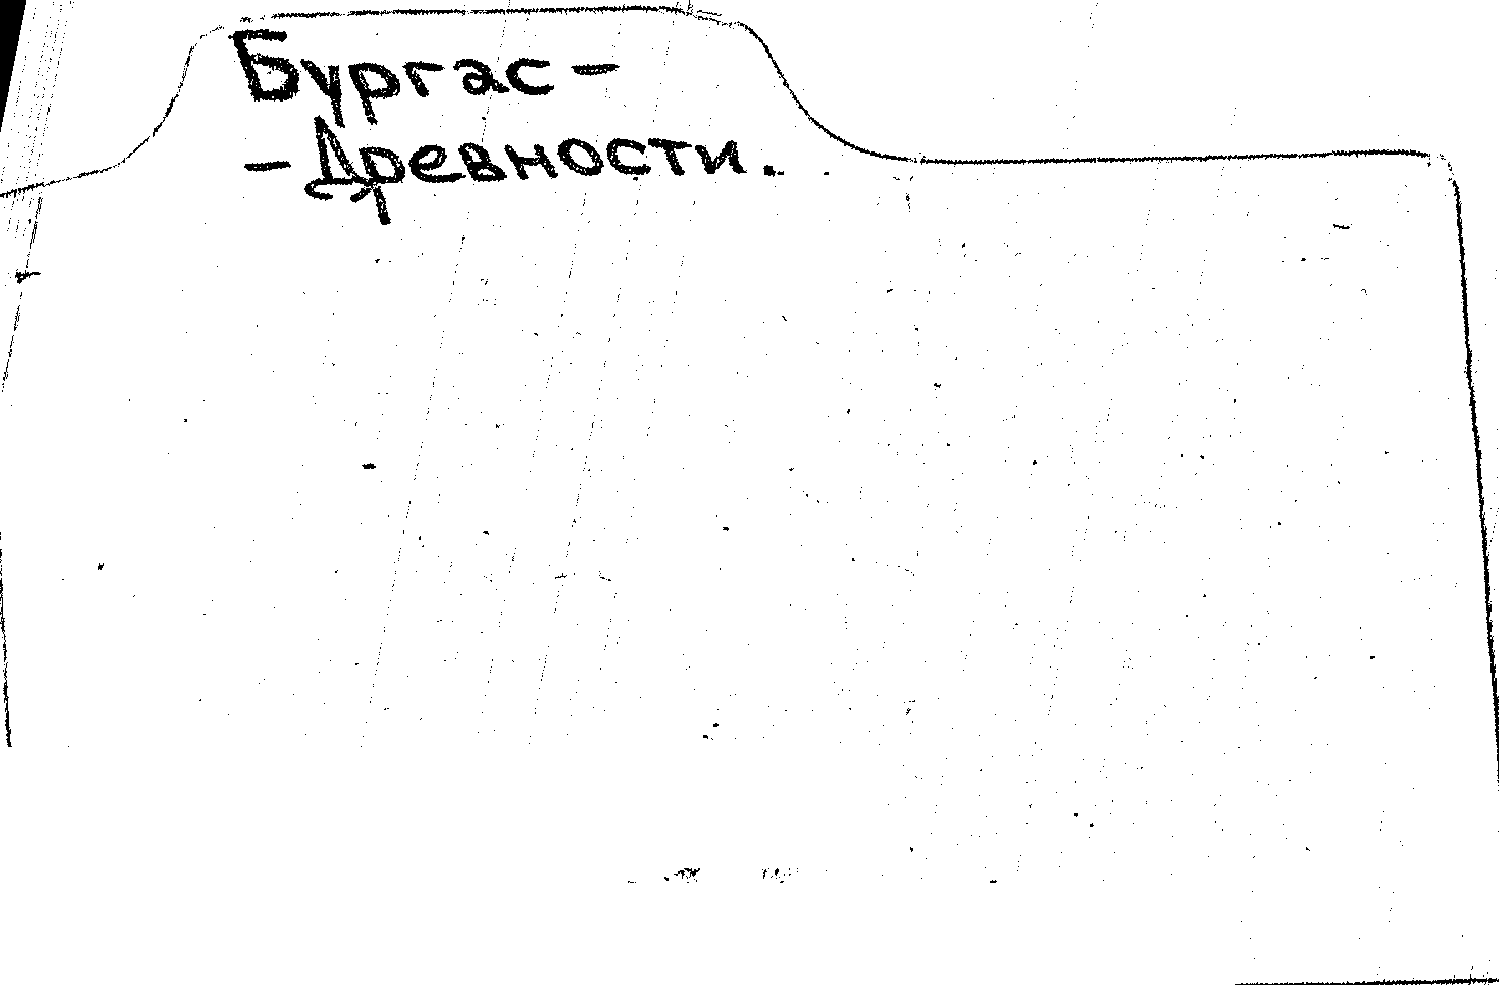 Бургас -
- Древности.